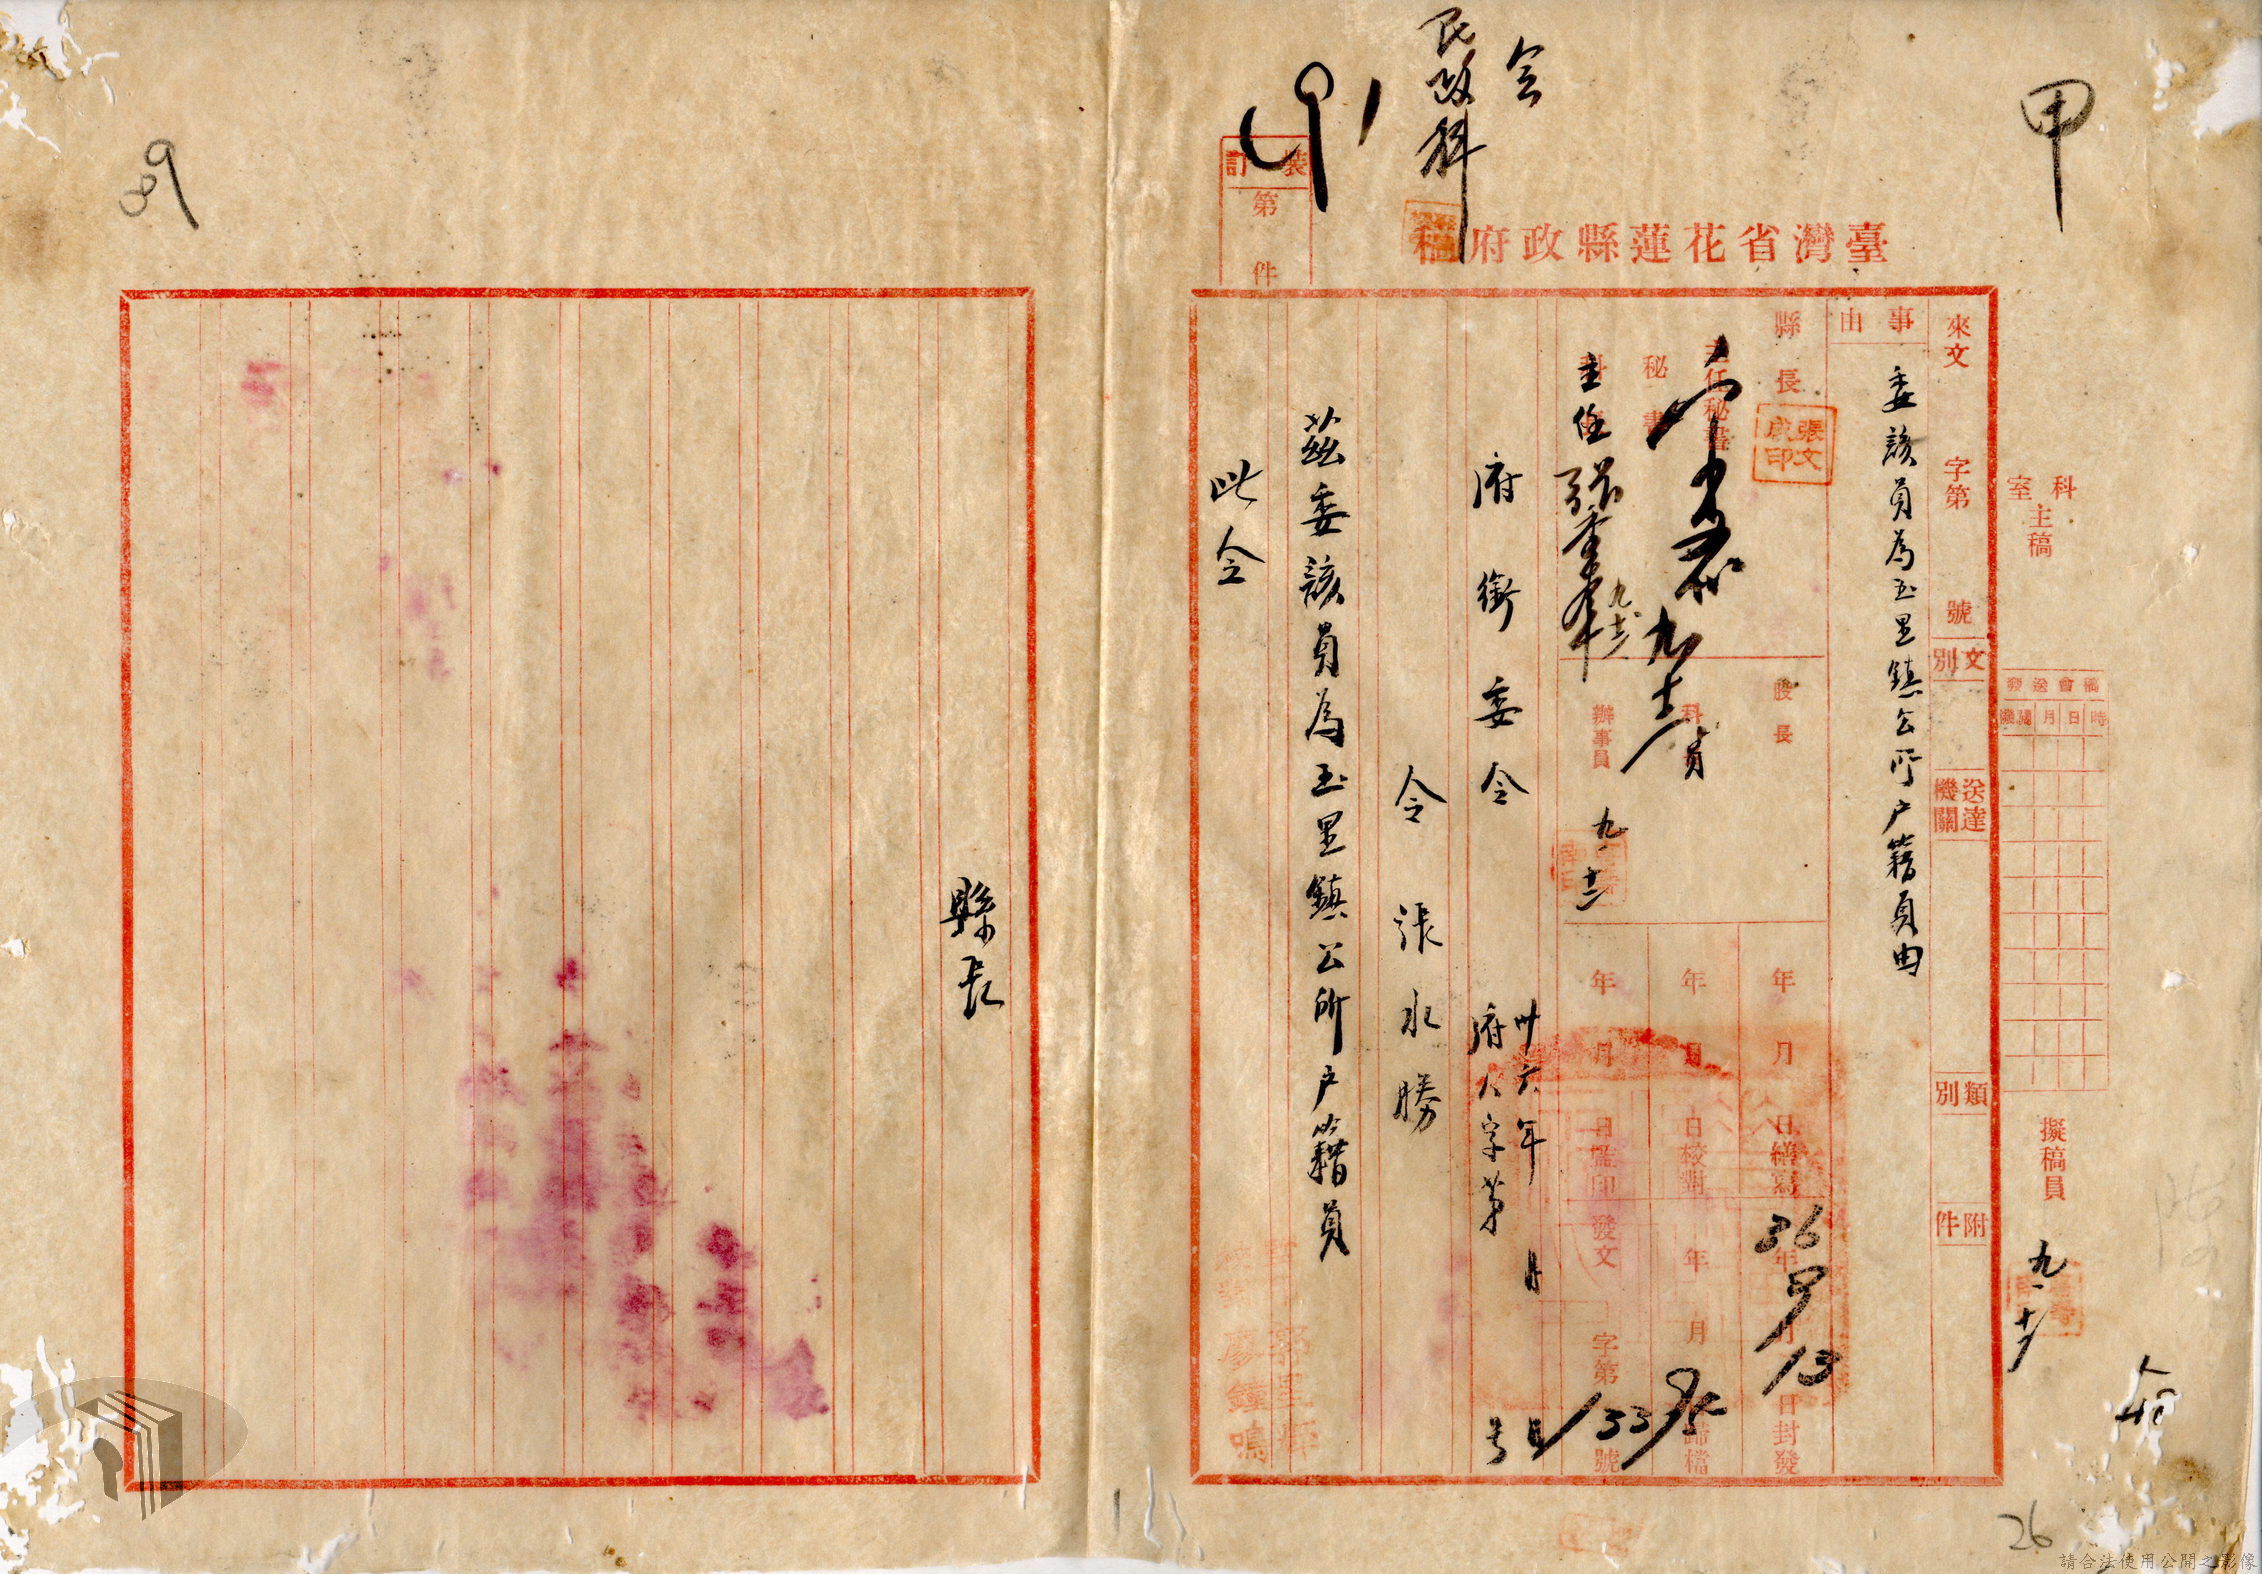 甲
會
民政科
臺灣省花蓮縣政府稿
裝訂
第
件
科室主稿
稿會送發
時日月機關
擬稿員
九、十
來文
字第
號
文別
送達機關
類別
附件
事由
委該員為玉里鎮公所户籍員由
縣長
張文成印
主任秘書
秘書
主任
九、十三
股長
科員
辦事員
九、十二
年月日繕寫
年月日校對
年月日監印
36年9月13日封發
年月
歸檔
發文
字第
號
13395
府銜委令
卅六年
月
府人字第
号
令張水勝
茲委該員為玉里鎮公所户籍員
此令
校對廖鐘鳴
縣長
89
26
請合法使用公開之影像